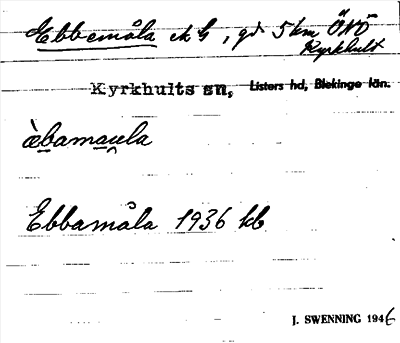 Ebbemåla ek G, gd 5 km ÖNÖ
Kyrkhult
Kyrkhults sn, Listers hd, Blekinge län.
àbamau̯la
Ebbamåla 1936 kb
J. SWENNING 1946